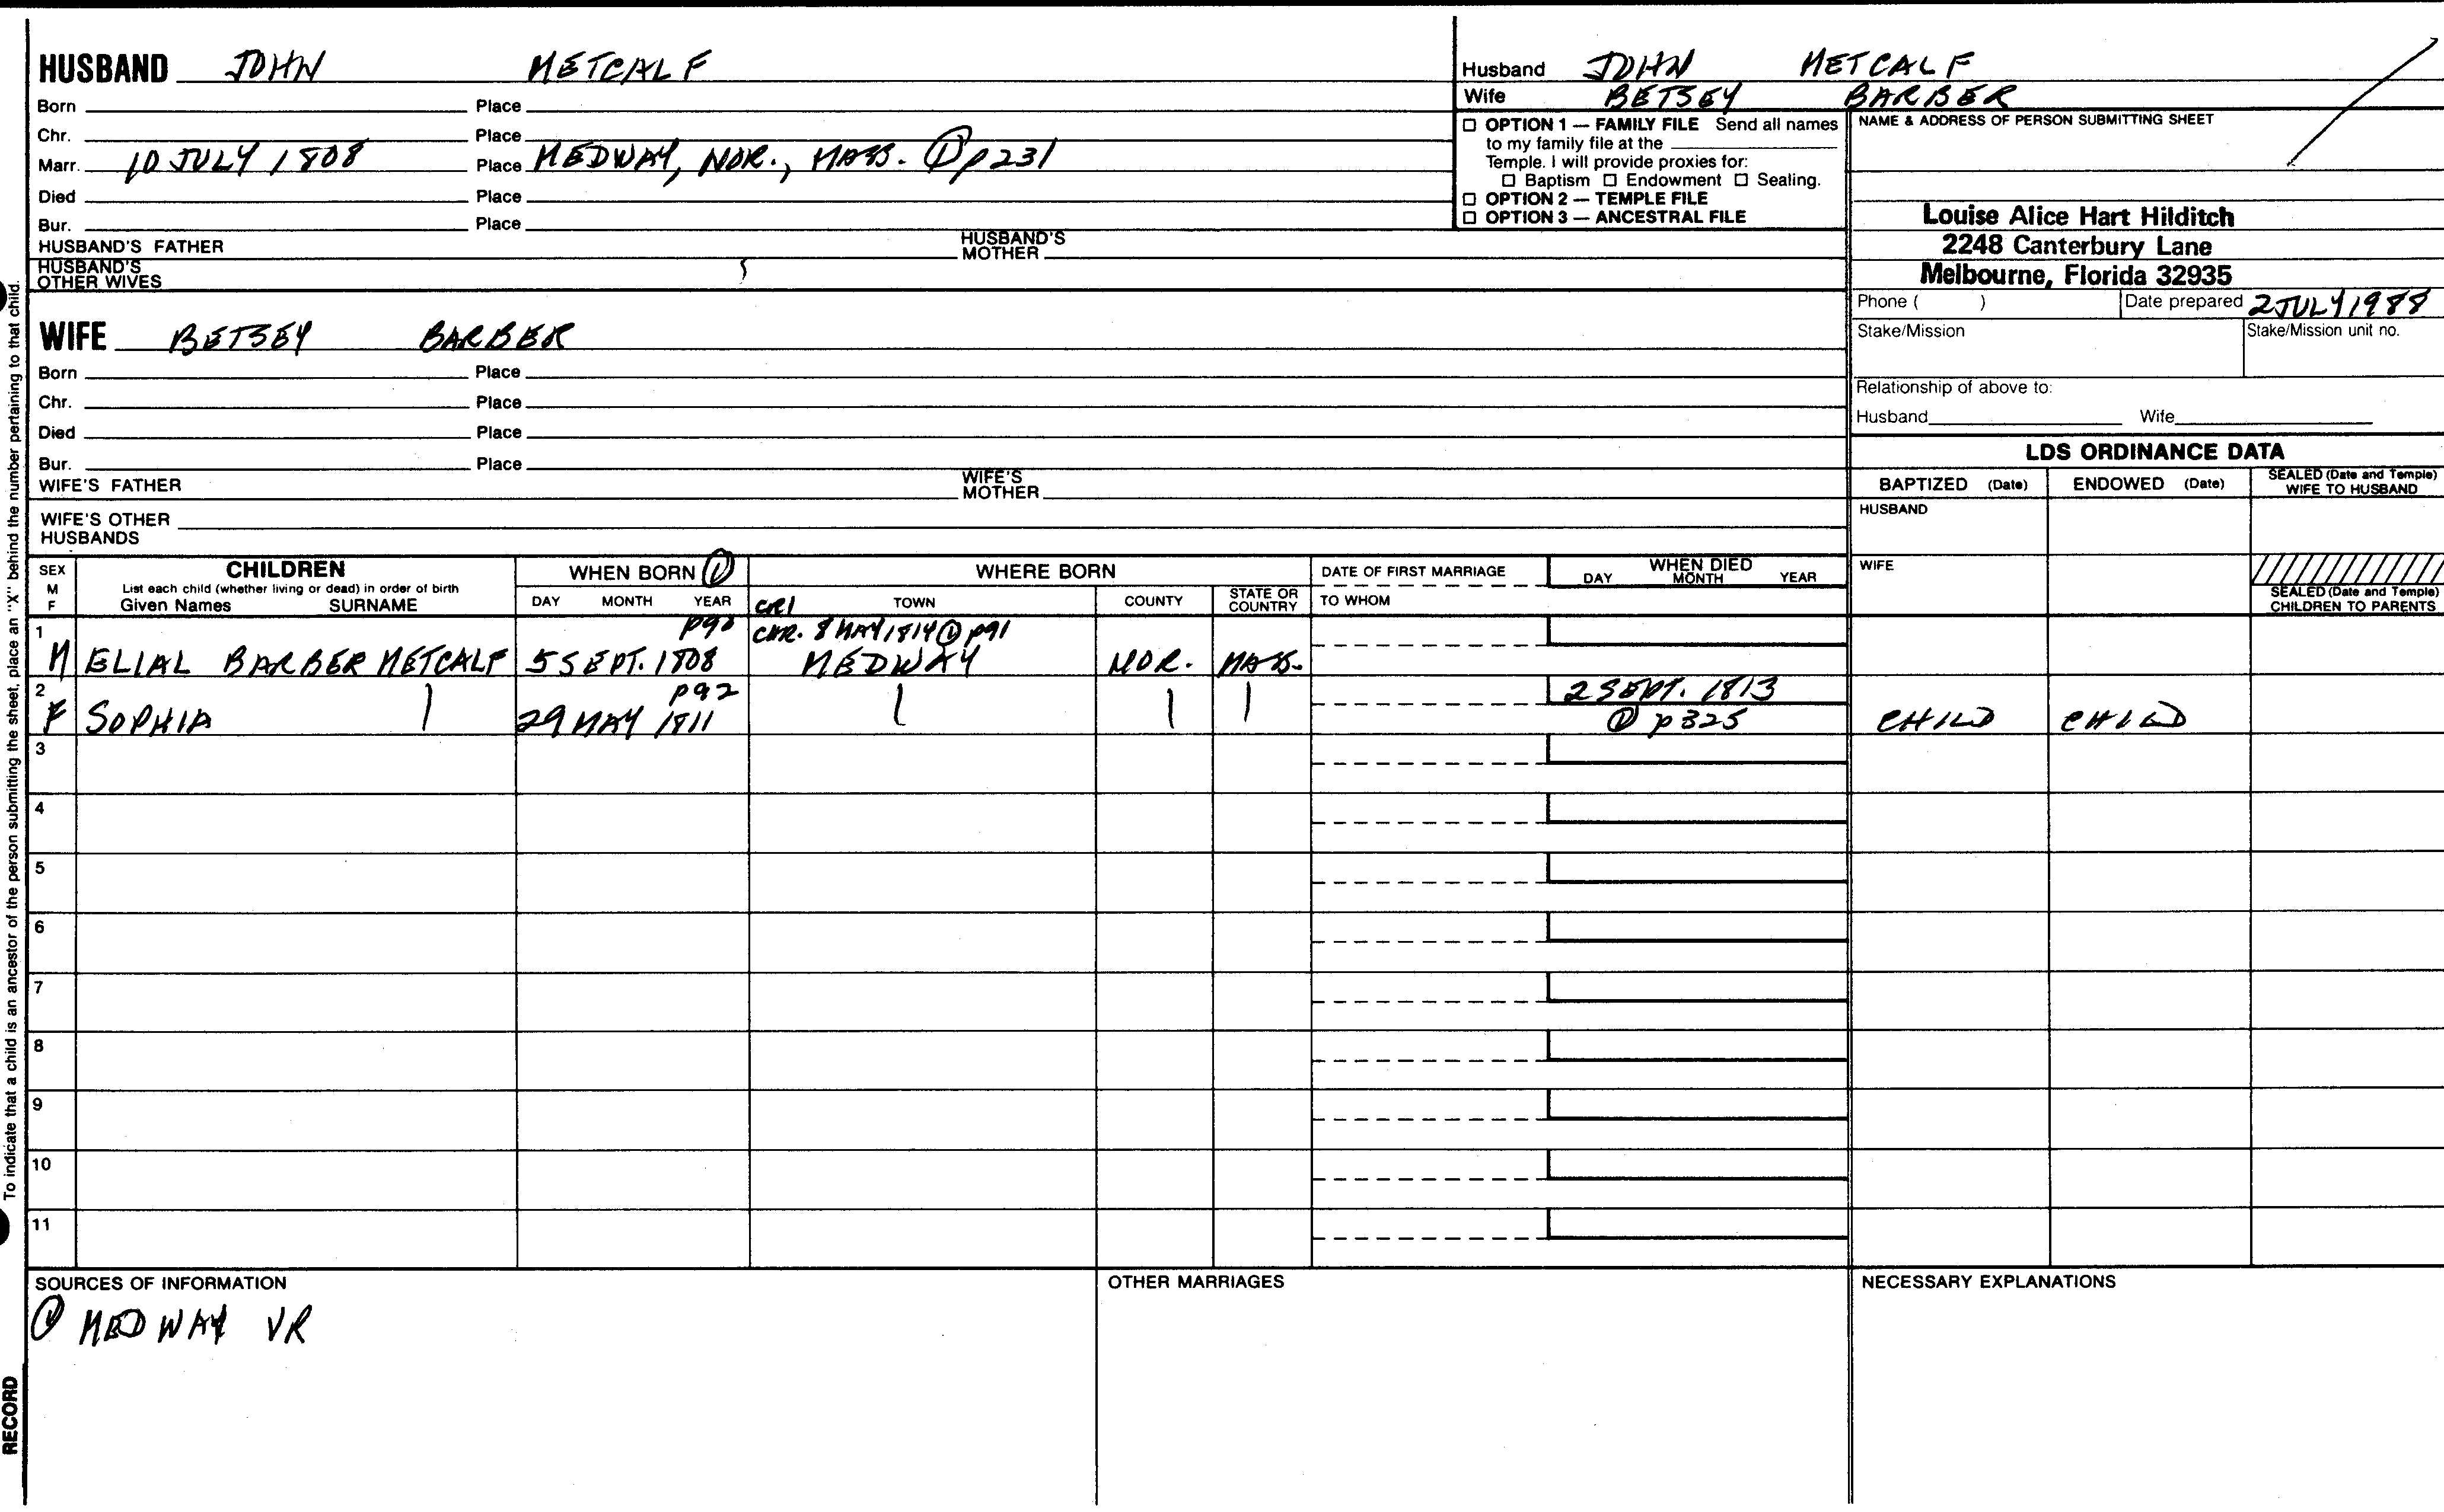 HUSBAND JOHN METCALF
Born Place
Chr. Place
Marr. 10 JULY 1808 Place MEDWAY, NOR., MASS. ① p231
Died Place
Bur. Place
HUSBAND'S FATHER HUSBAND'S MOTHER
HUSBAND'S OTHER WIVES
WIFE BETSEY BARBER
Born Place
Chr. Place
Died Place
Bur. Place
WIFE'S FATHER WIFE'S MOTHER
WIFE'S OTHER HUSBANDS
Husband JOHN METCALF
Wife BETSEY BARBER
☐ OPTION 1 — FAMILY FILE Send all names
to my family file at the
Temple. I will provide proxies for:
☐ Baptism ☐ Endowment ☐ Sealing.
☐ OPTION 2 — TEMPLE FILE
☐ OPTION 3 — ANCESTRAL FILE
NAME & ADDRESS OF PERSON SUBMITTING SHEET
Louise Alice Hart Hilditch
2248 Canterbury Lane
Melbourne, Florida 32935
Phone ( ) Date prepared 2 JULY 1988
Stake/Mission Stake/Mission unit no.
Relationship of above to:
Husband Wife
LDS ORDINANCE DATA
BAPTIZED (Date) ENDOWED (Date) SEALED (Date and Temple) WIFE TO HUSBAND
HUSBAND
WIFE
SEALED (Date and Temple) CHILDREN TO PARENTS
SEX M F
CHILDREN
List each child (whether living or dead) in order of birth
Given Names SURNAME
WHEN BORN ①
DAY MONTH YEAR
WHERE BORN
CR1 TOWN COUNTY STATE OR COUNTRY
DATE OF FIRST MARRIAGE
TO WHOM
WHEN DIED
DAY MONTH YEAR
1 p90 CHR. 8 MAY 1814 ① p91
M ELIAL BARBER METCALF 5 SEPT. 1808 MEDWAY NOR. MASS.
2 p92 2 SEPT. 1813
F SOPHIA 29 MAY 1811 ① p325 CHILD CHILD
3
4
5
6
7
8
9
10
11
SOURCES OF INFORMATION
① MEDWAY VR
OTHER MARRIAGES
NECESSARY EXPLANATIONS
To indicate that a child is an ancestor of the person submitting the sheet, place an "X" behind the number pertaining to that child.
RECORD